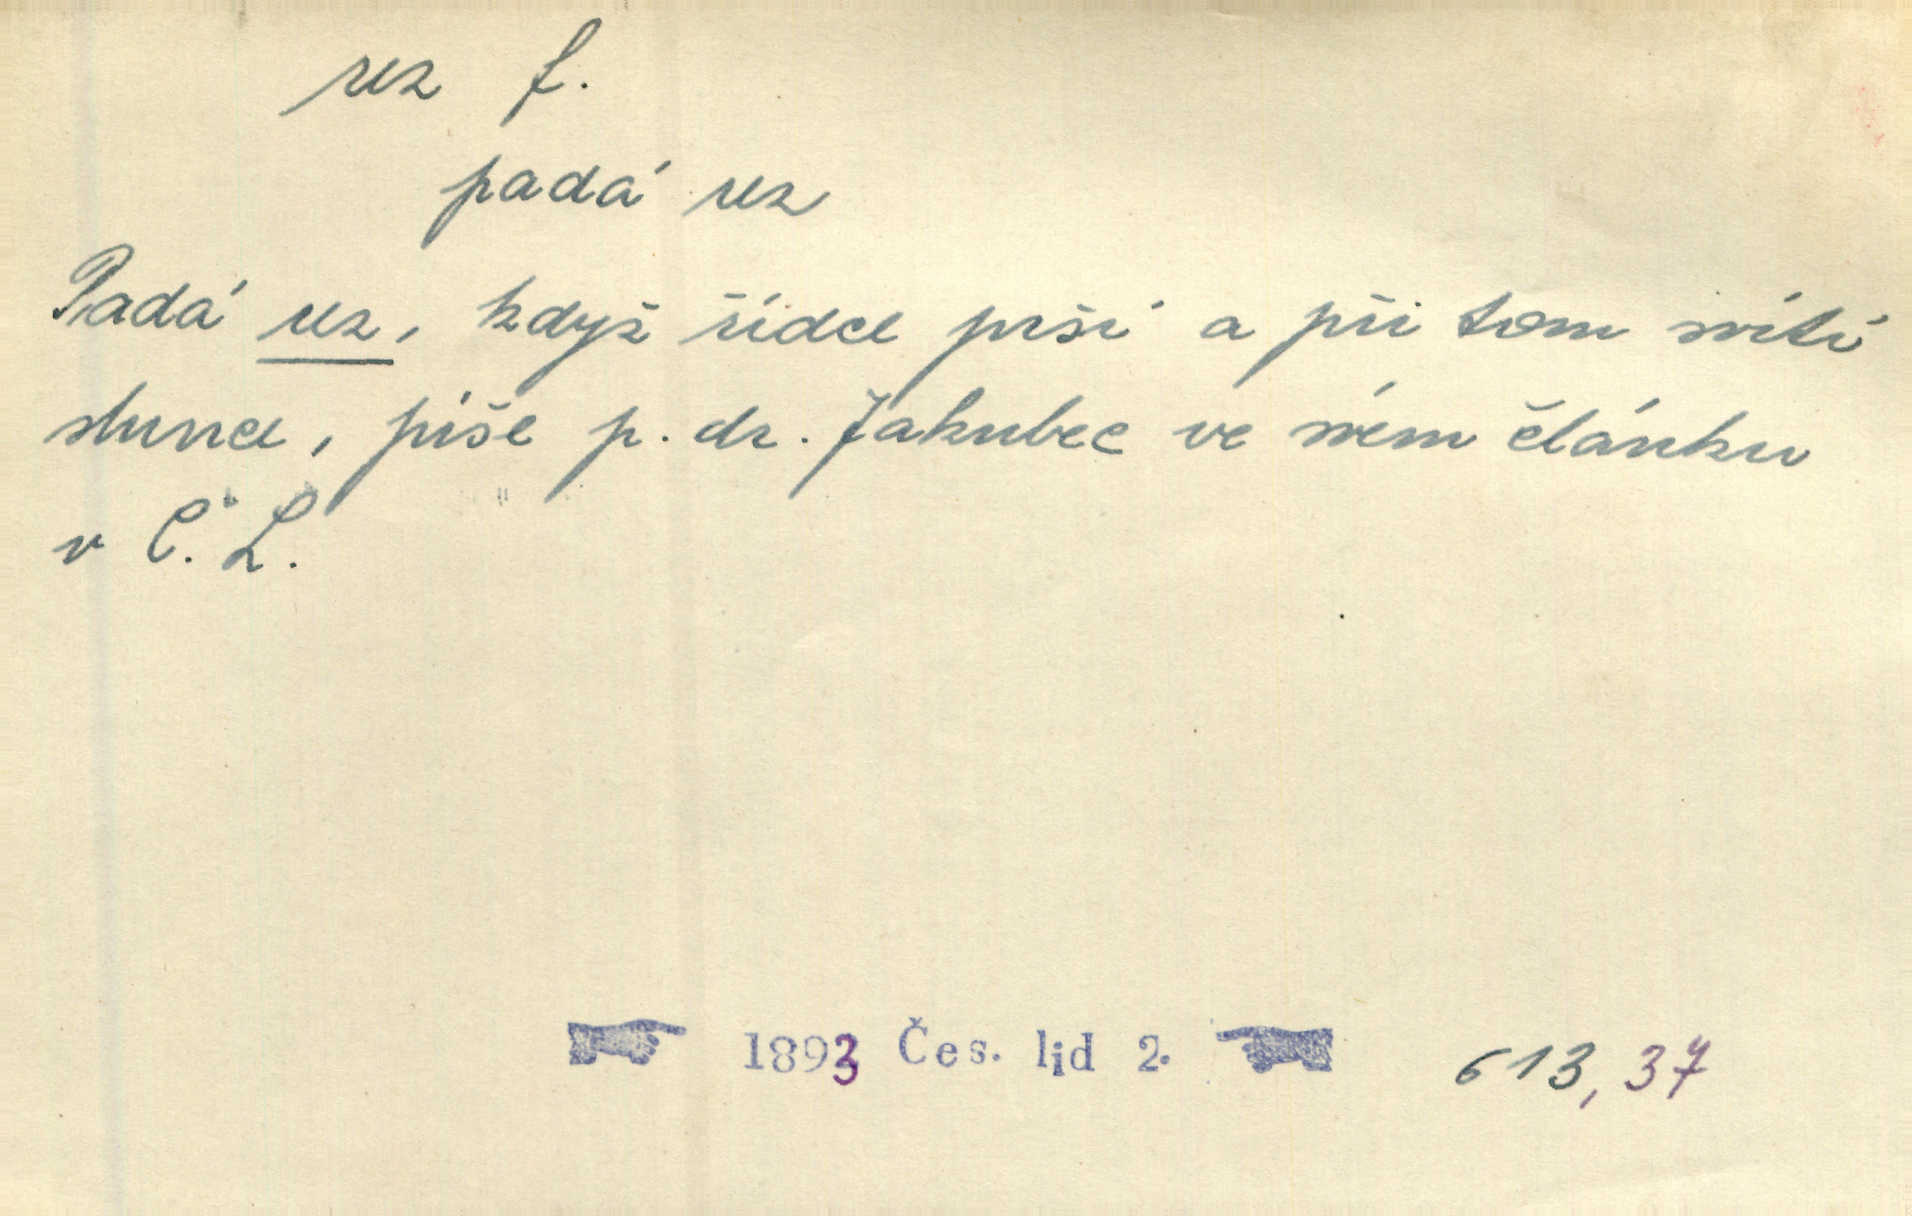 rez f.
padá rez
Padá rez, když řídce prší a při tom svítí
slunce, píše p. dr. Jakubec ve svém článku
v Č. L.
1893 Čes. lid 2. 613, 37